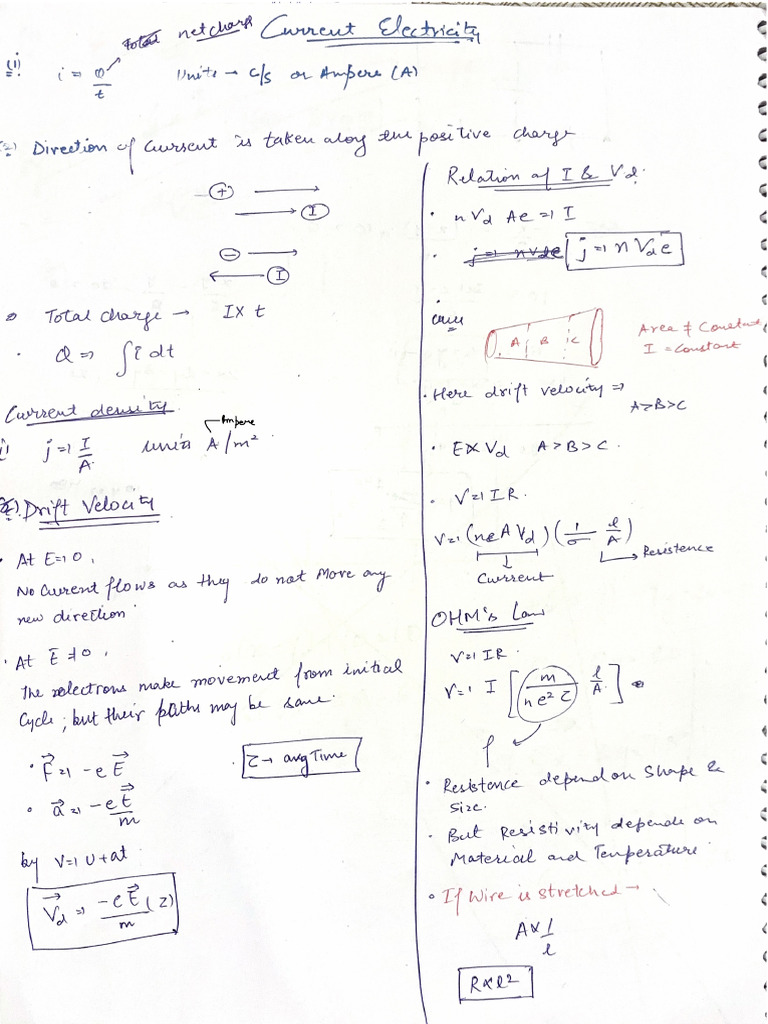 Total net charge Current Electricity
(1) i = Q/t Units → C/s or Ampere (A)
(2) Direction of Current is taken along the positive charge
+ →
→ I
- →
← I
Total charge → I × t
Q ⇒ ∫i dt
Current density
j ⇒ I/A units A/m²
Ampere
Drift Velocity
• At E ⇒ 0,
No Current flows as they do not Move any
new direction
• At E ≠ 0,
The electrons make movement from initial
Cycle, but their paths may be same.
• F⃗ ⇒ -e E⃗
τ → avg Time
• a⃗ ⇒ -e E⃗/m
by V ⇒ u + at
V⃗d ⇒ -e E⃗/m (τ)
Relation of I & Vd.
• n Vd Ae ⇒ I
• j ⇒ nVde j ⇒ n Vd e
A B C
Area ≠ Constant
I = Constant
• Here drift velocity ⇒
A>B>C
• E ∝ Vd A > B > C.
• V ⇒ IR.
V ⇒ (neA Vd) (1/σ l/A)
Resistence
Current
OHM's Law
V ⇒ IR.
V ⇒ I [m/ne²τ l/A]
ρ
• Resistence depend on Shape &
Size.
• But Resistivity depends on
Material and Temperature
• If Wire is stretched →
A ∝ 1/l
R ∝ l²